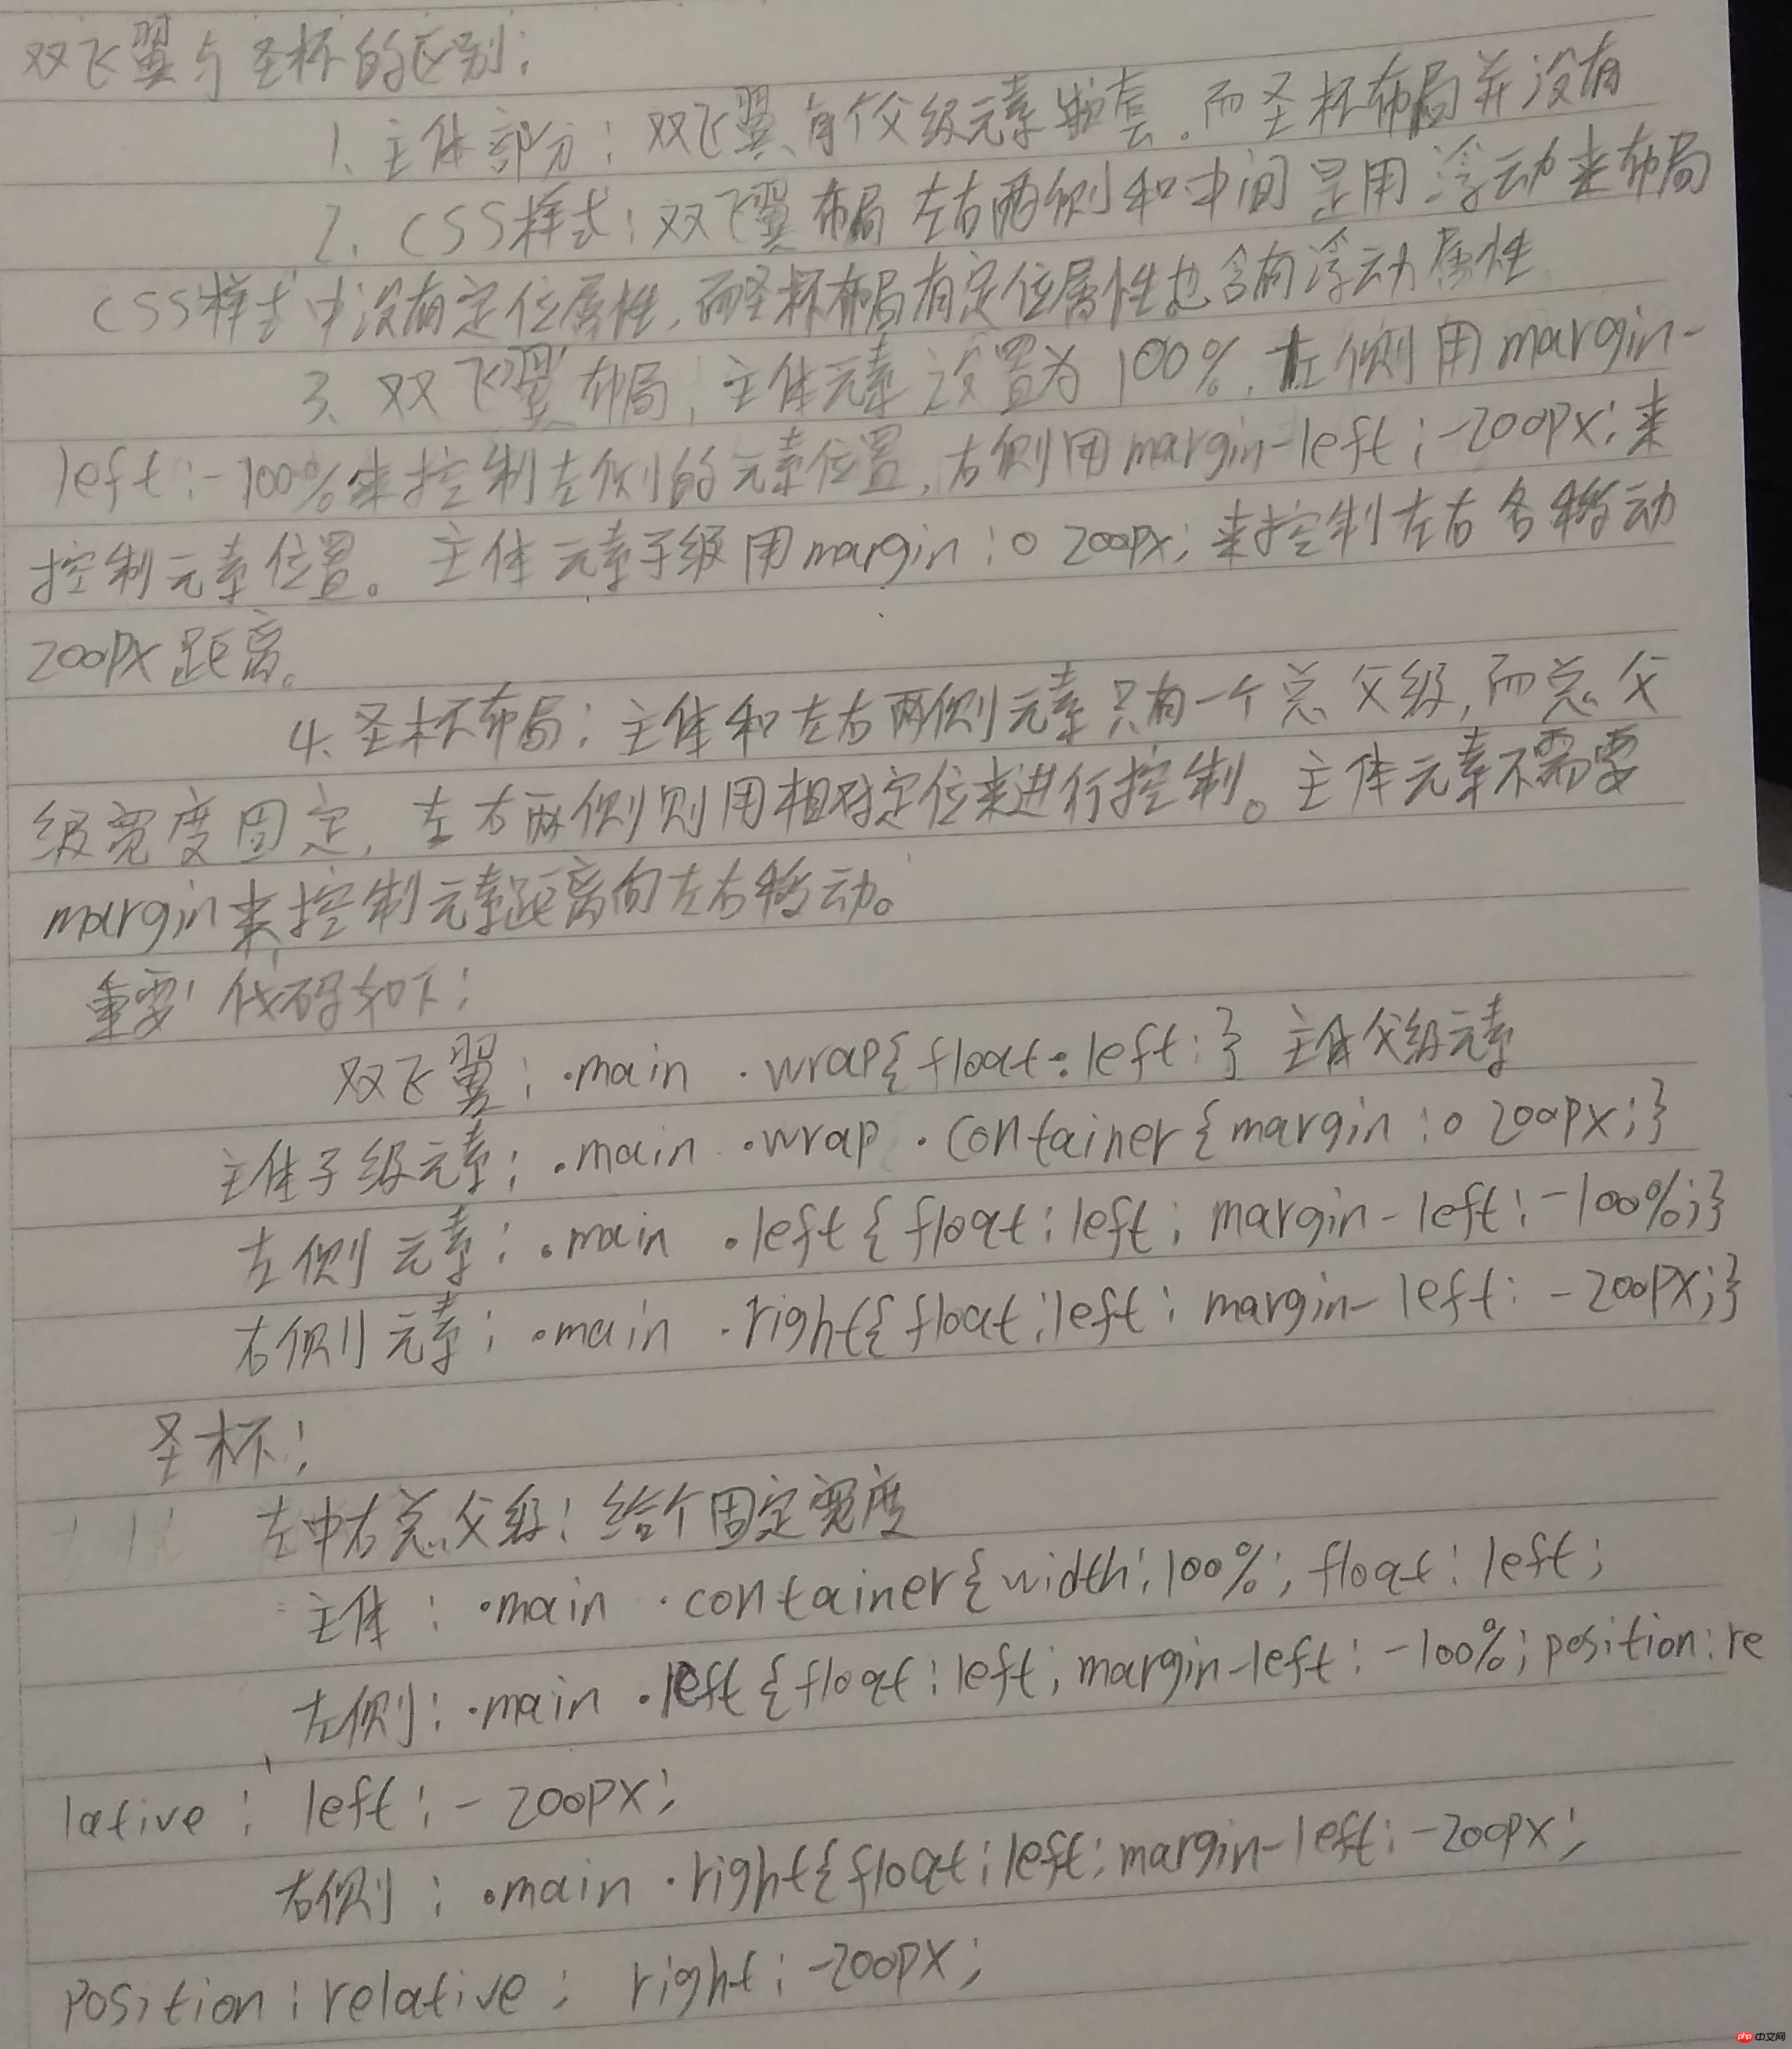 双飞翼与圣杯的区别:
1、主体部分:双飞翼有个父级元素嵌套。而圣杯布局并没有
2、CSS样式:双飞翼布局左右两侧和中间是用浮动来布局
CSS样式中没有定位属性,而圣杯布局有定位属性也含有浮动属性
3、双飞翼布局:主体元素设置为100%,左侧用margin-
left:-100%来控制左侧的元素位置,右侧用margin-left:-200px;来
控制元素位置。主体元素子级用margin:0 200px;来控制左右各移动
200px距离。
4、圣杯布局:主体和左右两侧元素只有一个总父级,而总父
级宽度固定,左右两侧则用相对定位来进行控制。主体元素不需要
margin来控制元素距离向左右移动。
重要代码如下:
双飞翼:.main .wrap{float:left;} 主体父级元素
主体子级元素:.main .wrap .container{margin:0 200px;}
左侧元素:.main .left{float:left;margin-left:-100%;}
右侧元素:.main .right{float:left;margin-left:-200px;}
圣杯:
左中右总父级:给个固定宽度
主体:.main .container{width:100%;float:left;
左侧:.main .left{float:left;margin-left:-100%;position:re
lative;left:-200px;
右侧:.main .right{float:left;margin-left:-200px;
position:relative;right:-200px;
php 中文网